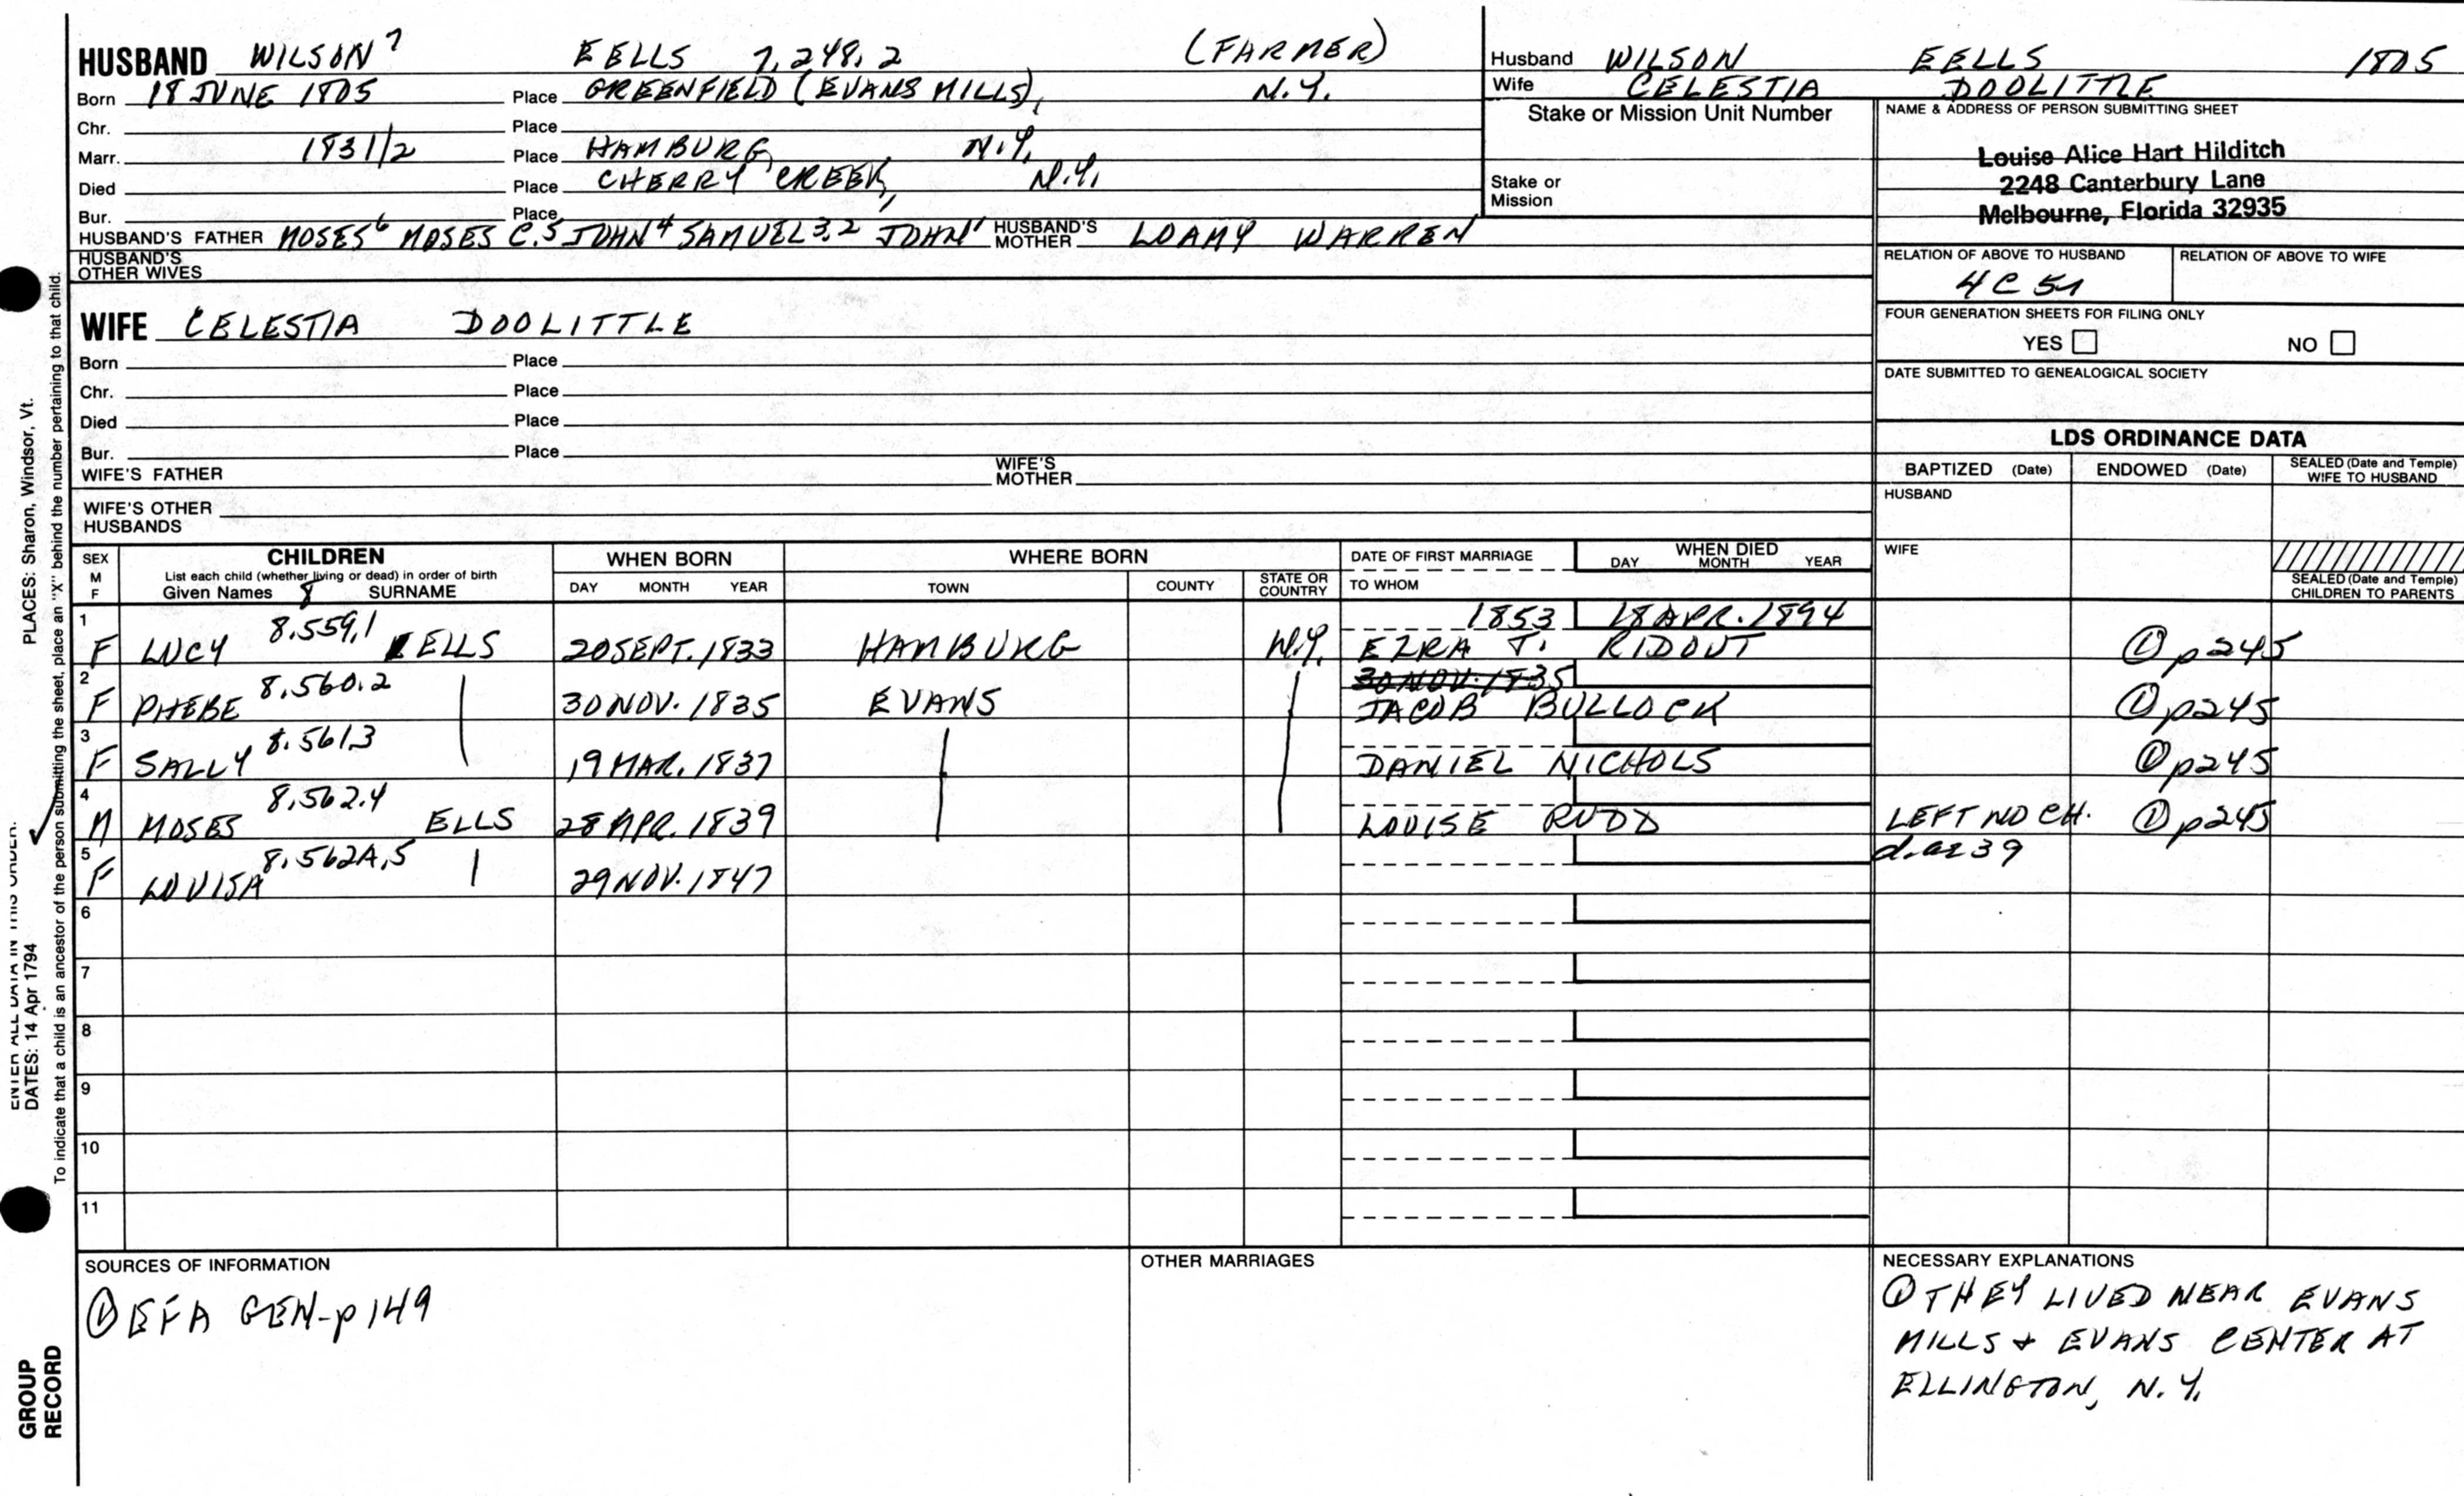 HUSBAND WILSON⁷ EELLS 7,248.2 (FARMER)
Born 18 JUNE 1805 Place GREENFIELD (EVANS MILLS), N.Y.
Chr. Place
Marr. 1831/2 Place HAMBURG N.Y.
Died Place CHERRY CREEK, N.Y.
Bur. Place
HUSBAND'S FATHER MOSES⁶ MOSES C.⁵ JOHN⁴ SAMUEL³,² JOHN¹ HUSBAND'S MOTHER LOAMY WARREN
HUSBAND'S OTHER WIVES
Husband WILSON EELLS 1805
Wife CELESTIA DOOLITTLE
Stake or Mission Unit Number
Stake or Mission
NAME & ADDRESS OF PERSON SUBMITTING SHEET
Louise Alice Hart Hilditch
2248 Canterbury Lane
Melbourne, Florida 32935
RELATION OF ABOVE TO HUSBAND RELATION OF ABOVE TO WIFE
4C5r
FOUR GENERATION SHEETS FOR FILING ONLY
YES NO
DATE SUBMITTED TO GENEALOGICAL SOCIETY
WIFE CELESTIA DOOLITTLE
Born Place
Chr. Place
Died Place
Bur. Place
WIFE'S FATHER WIFE'S MOTHER
WIFE'S OTHER HUSBANDS
LDS ORDINANCE DATA
BAPTIZED (Date) ENDOWED (Date) SEALED (Date and Temple) WIFE TO HUSBAND
HUSBAND
WIFE
SEALED (Date and Temple) CHILDREN TO PARENTS
SEX M F CHILDREN WHEN BORN WHERE BORN DATE OF FIRST MARRIAGE WHEN DIED
List each child (whether living or dead) in order of birth DAY MONTH YEAR
Given Names 8 SURNAME DAY MONTH YEAR TOWN COUNTY STATE OR COUNTRY TO WHOM
1 F LUCY 8.559,1 EELLS 20 SEPT. 1833 HAMBURG N.Y. 1853 18 APR. 1894 EZRA T. RIDOUT ① p245
2 F PHEBE 8.560.2 30 NOV. 1835 EVANS 30 NOV. 1835 JACOB BULLOCK ① p245
3 F SALLY 8.561.3 19 MAR. 1837 DANIEL NICHOLS ① p245
4 M MOSES 8.562.4 ELLS 28 APR. 1839 LOUISE RUDD LEFT NO CH. ① p245
5 F LOUISA 8.562A.5 29 NOV. 1847 d. ae 39
6
7
8
9
10
11
SOURCES OF INFORMATION
① EFA GEN-p149
OTHER MARRIAGES
NECESSARY EXPLANATIONS
① THEY LIVED NEAR EVANS
MILLS + EVANS CENTER AT
ELLINGTON, N.Y.
PLACES: Sharon, Windsor, Vt.
ENTER ALL DATA IN THIS ORDER:
DATES: 14 Apr 1794
To indicate that a child is an ancestor of the person submitting the sheet, place an "X" behind the number pertaining to that child.
GROUP
RECORD